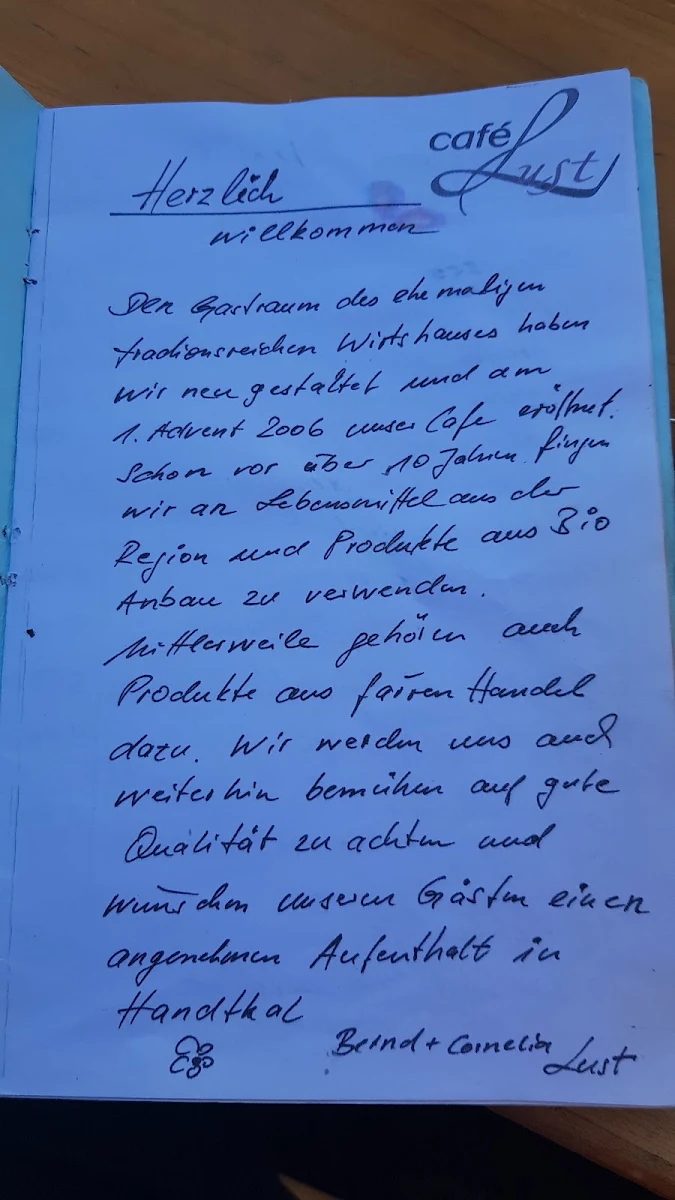 café Lust
Herzlich
willkommen
Der Gastraum des ehemaligen
tradionsreichen Wirtshauses haben
wir neu gestaltet und am
1. Advent 2006 unser Cafe eröffnet.
Schon vor über 10 Jahren fingen
wir an Lebensmittel aus der
Region und Produkte aus Bio
Anbau zu verwenden.
Mittlerweile gehören auch
Produkte aus fairen Handel
dazu. Wir werden uns auch
weiterhin bemühen auf gute
Qualität zu achten und
wünschen unseren Gästen einen
angenehmen Aufenthalt in
Handthal
Bernd + Cornelia Lust